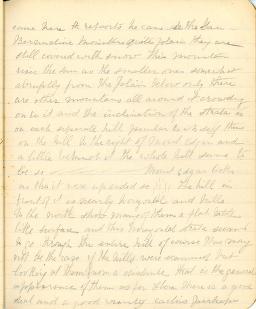 came here & reports he can see the San
Bernardino Mountains quite plain they are
still covered with snow This mountain
rises the sun as the smaller ones somewhat
abruptly from the plain below only there
are other mountains all around it crowding
on to it and the inclination of the strata is
on each separate hill peculiar to itself
on the hill to the right of Mount Edgar and
a little behind it the whole hill seems to
be so Mount Edgar looks
as tho it were upended so the hill in
front of it is nearly horizontal and hills
to the north show many of them a flat table
like surface and this horizontal strata seems
to go through the entire hill of course this may
not be the case if the hills were examined but
looking at them from a distance that is the general
appearance of them as far below there is a good
deal and a good variety